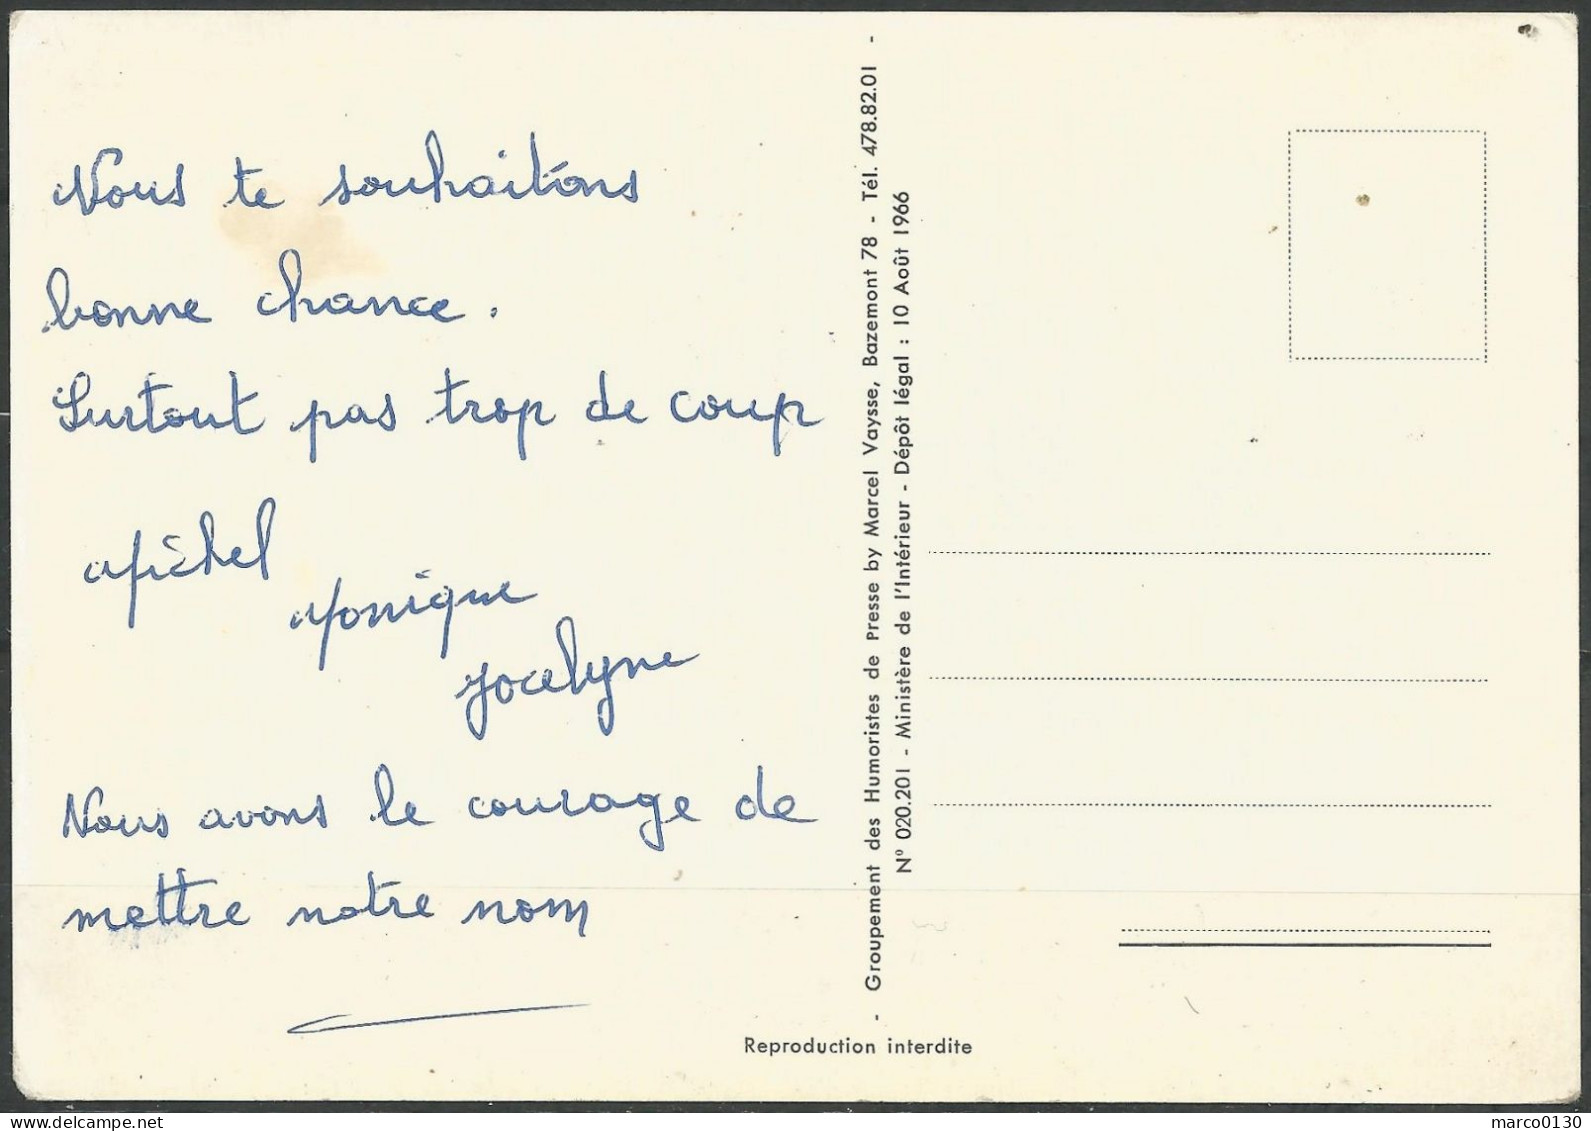 Nous te souhaitons
bonne chance.
Surtout pas trop de coup
Michel
Monique
Jocelyne
Nous avons le courage de
mettre notre nom
- Groupement des Humoristes de Presse by Marcel Vaysse, Bazemont 78 - Tél. 478.82.01 -
N° 020.201 - Ministère de l'Intérieur - Dépôt légal : 10 Août 1966
Reproduction interdite
marco0130